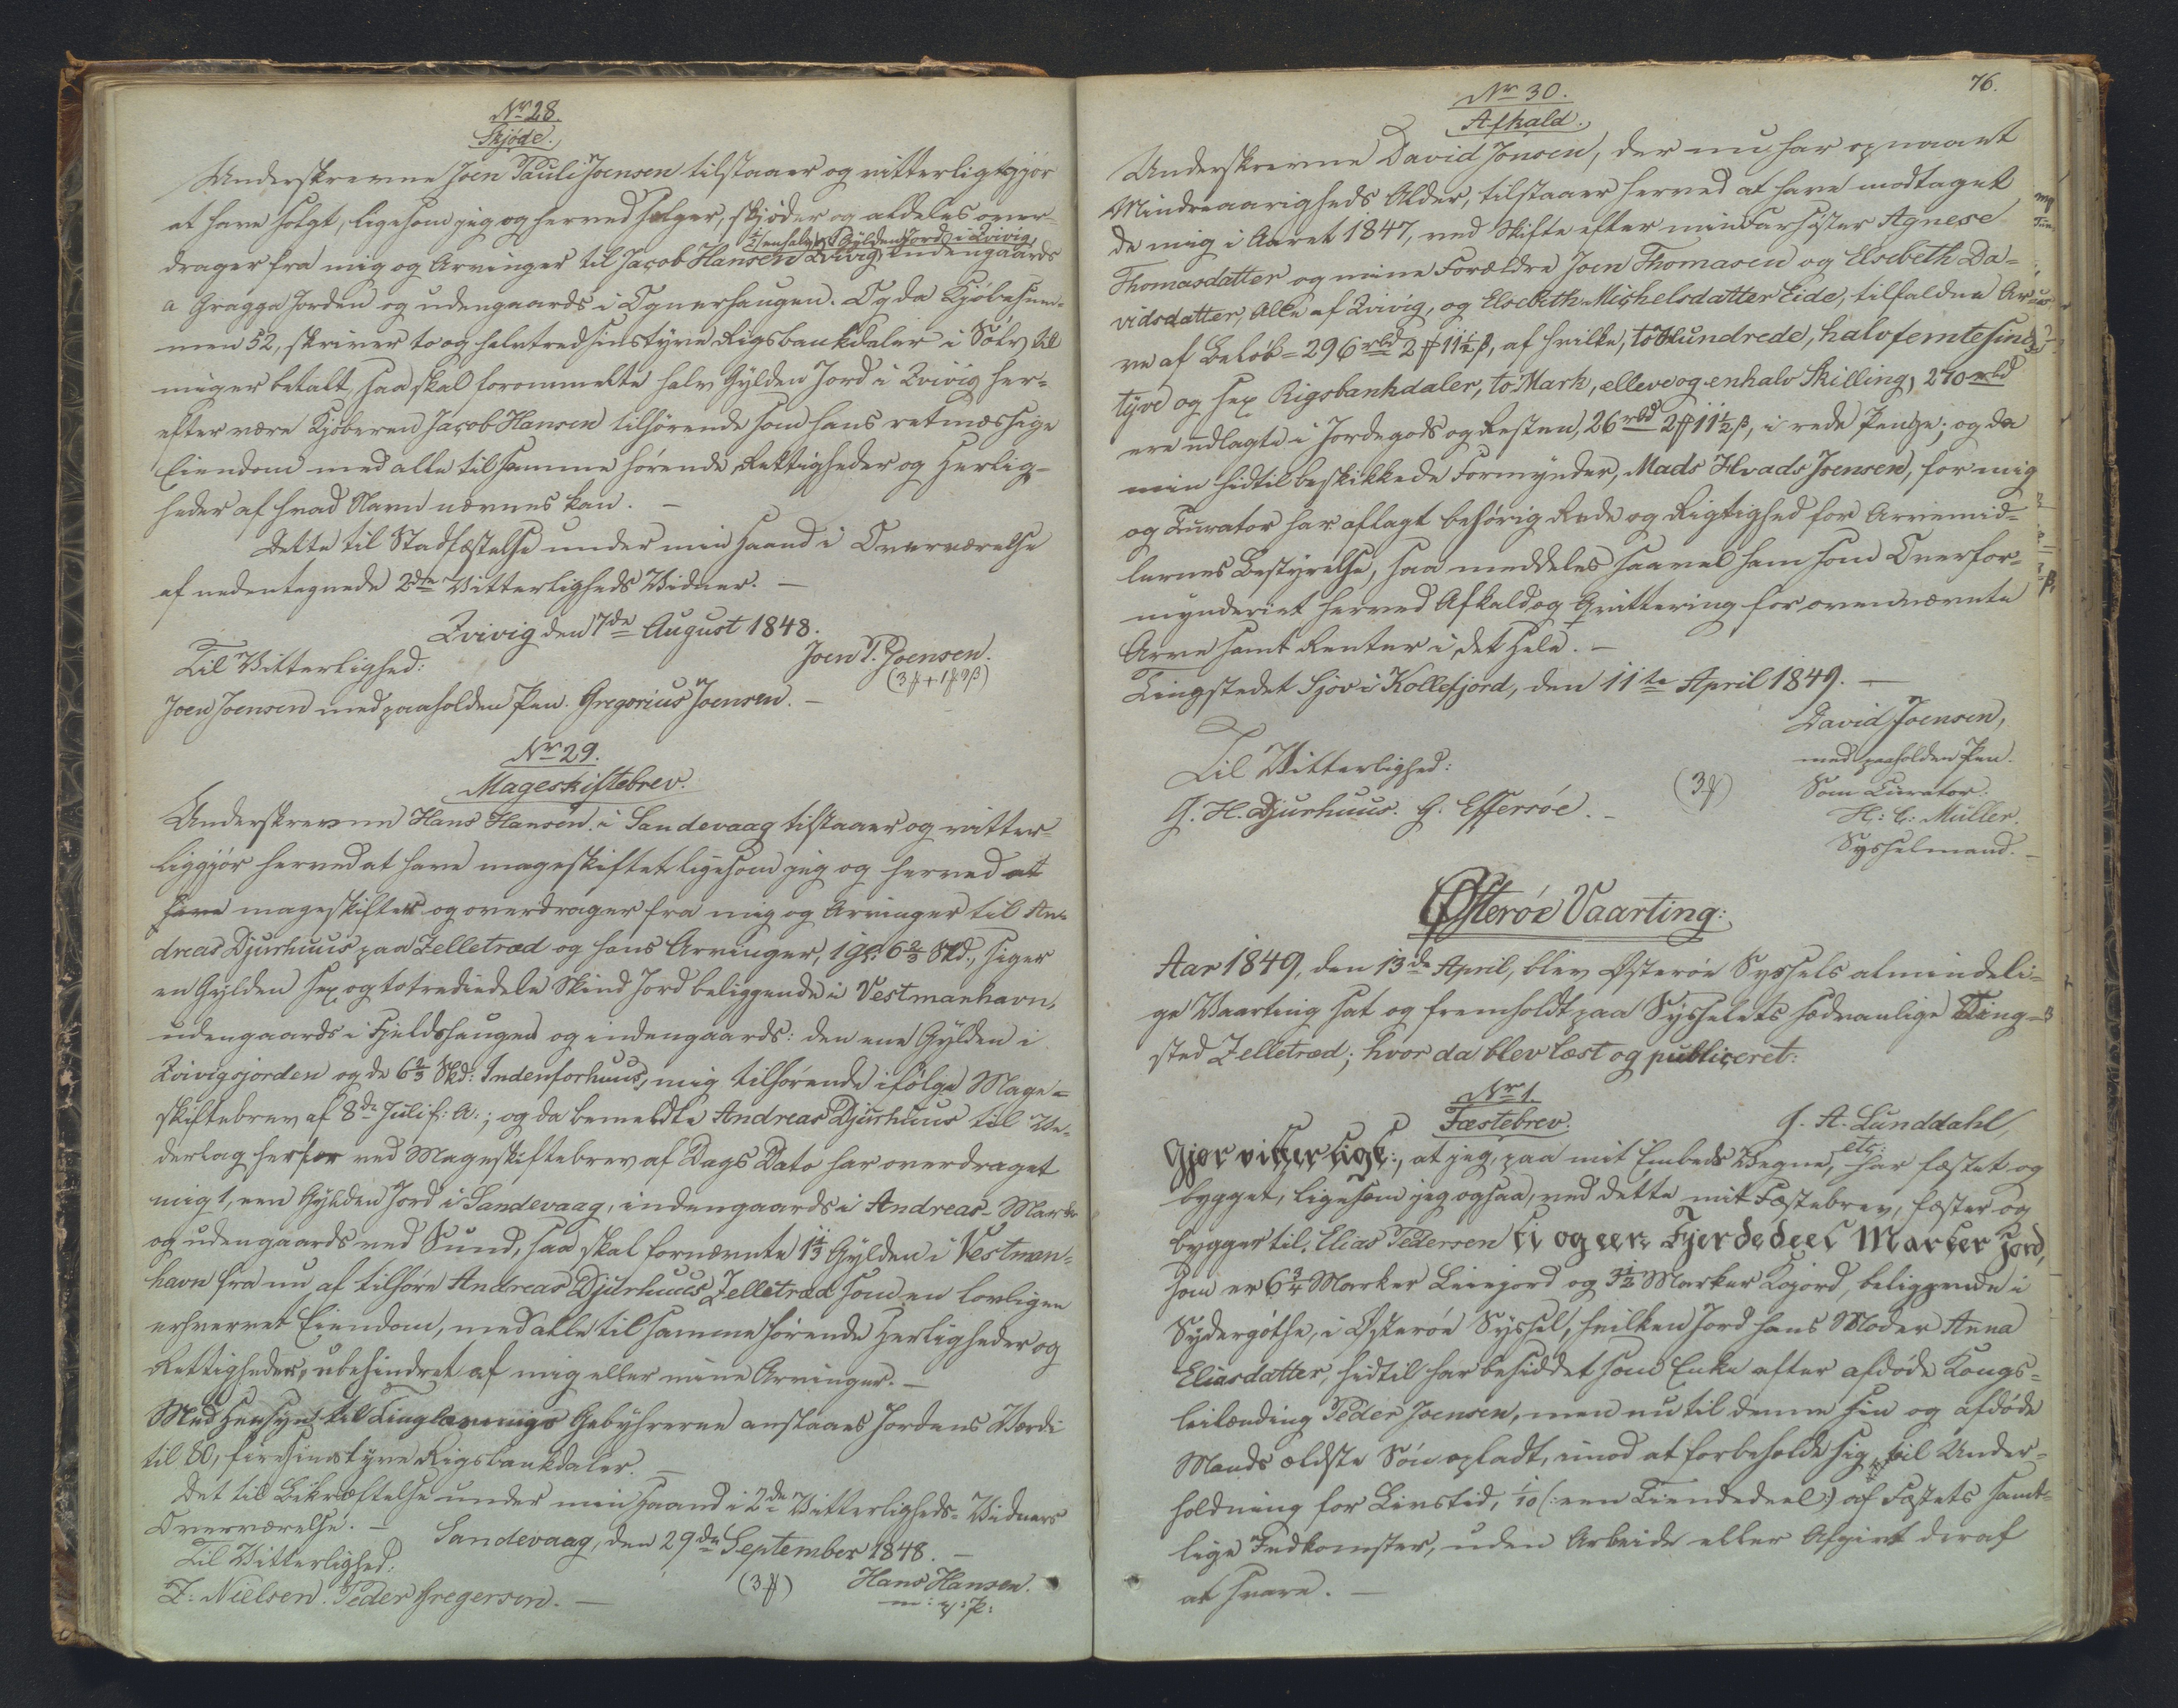 Nr 28.
Skjøde.
Underskrevne Joen Pauli Joensen tilstaaer og vitterligtgjør
at have solgt, ligesom jeg og herved sælger, skjøder og aldeles over-
½ en halv Gylden Jord i Qvivig,
drager fra mig og Arvinger til Jacob Hansen Qvivig indengaards
a Gragga Jorden og udengaards i Ognerhaugen. Og da Kjøbesum-
men 52, skriver to og halvtredsinstyve Rigsbankdaler i Sølv til
mig er betalt, saa skal forommeldte halv Gylden Jord i Qvivig her-
efter være Kjøberen Jacob Hansen tilhørende som hans retmæssige
Eiendom med alle til samme hørende Rettigheder og Herlig-
heder af hvad Navn nævnes kan. –
Dette til Stadfæstelse under min Haand i Overværelse
af nedentegnede 2de Vitterligheds Vidner. –
Qvivig den 7de August 1848.
Til Vitterlighed:
Joen P. Joensen.
(3 ℳ + 1 ℳ 9 β)
Joen Joensen med paaholden Pen. Gregorius Joensen. –
Nr 29.
Mageskiftebrev.
Underskrevne Hans Hansen i Sandevaag tilstaaer og vitter-
liggjør herved at have mageskiftet ligesom jeg og herved at
have mageskifter og overdrager fra mig og Arvinger til An-
dreas Djurhuus paa Zelletræd og hans Arvinger, 1 Gl: 6⅔ Skd., siger
en Gylden sex og totrediedele Skind Jord beliggende i Vestmanhavn,
udengaards i Fjeldshaugen og indengaards: den ene Gylden i
Qvivigsjorden og de 6⅔ Skd: Indenforhuus, mig tilhørende ifølge Mage-
skiftebrev af 8de Juli s: A:; og da bemeldte Andreas Djurhuus til Ve-
derlag herfor ved Mageskiftebrev af Dags Dato har overdraget
mig 1, een Gylden Jord i Sandevaag, indengaards i Andreas-Mark
og udengaards ved Sund, saa skal fornævnte 1⅓ Gylden i Vestman-
havn fra nu af tilhøre Andreas Djurhuus Zelletræd som en lovligen
erhvervet Eiendom, med alle til samme hørende Herligheder og
Rettigheder, ubehindret af mig eller mine Arvinger. –
Med Hensyn til Tinglæsnings Gebyhrerne ansættes Jordens Værdi
til 80, firesinstyve Rigsbankdaler. –
Det til Bekræftelse under min Haand i 2de Vitterligheds-Vidners
Overværelse. – Sandevaag, den 29de September 1848. –
Til Vitterlighed:
(3 ℳ) Hans Hansen.
Z: Nielsen. Peder Gregersen. –
m: p: P:
76.
Nr 30.
Afkald.
Underskrevne David Jonsen, der nu har opnaaet
Mindreaarigheds Alder, tilstaaer herved at have modtaget
de mig i Aaret 1847, ved Skifte efter min Farsøster Agnese
Thomasdatter og mine Forældre Joen Thomasen og Elsebeth Da-
vidsdatter, Alle af Qvivig, og Elsebeth Michelsdatter Eide, tilfaldne Ar-
ve af Beløb = 296 rbd 2 ℳ 11½ β, af hvilke, to Hundrede, halvfemtesinds-
tyve og sex Rigsbankdaler, to Mark, elleve og en halv Skilling, 270 rbd
ere udlagte i Jordegods og Resten, 26 rbd 2 ℳ 11½ β, i rede Penge; og da
min hidtil beskikkede Formynder, Mads Hvads Joensen, for mig
og Curator har aflagt behørig Rede og Rigtighed for Arvemid-
lernes Bestyrelse, saa meddeles saavel ham som Overfor-
mynderiet herved Afkald og Qvittering for ovennævnte
Arve samt Renter i det Hele. –
Tingstedet Sjov i Kollefjord, den 11te April 1849. –
David Joensen,
med paaholden Pen.
Til Vitterlighed:
(3 ℳ)
Som Curator:
J. H. Djurhuus. G. Effersøe. –
H: C: Müller.
Sysselmand. –
Østerøe Vaarting:
Aar 1849, den 13de April, blev Østerøe Syssels almindeli-
ge Vaarting sat og fremholdt paa Sysselets sædvanlige Ting-
sted Zelletræd; hvor da blev læst og publiceret:
Nr 1.
Fæstebrev.
J. A. Lunddahl,
etc:
Gjør vitterligt:, at jeg, paa mit Embeds Vegne, har fæstet og
bygget, ligesom jeg ogsaa, ved dette mit Fæstebrev, fæster og
bygger til, Elias Pedersen ti og een Fjerdedeel Marker Jord,
som er 6¾ Marker Leiejord og 3½ Marker Kojord, beliggende i
Sydergøthe, i Østerøe Syssel, hvilken Jord hans Moder Anna
Eliasdatter, hidtil har besiddet som Enke efter afdøde Kongs-
leilænding Peder Joensen, men nu til denne sin og afdøde
Mands ældste Søn opladt, imod at forbeholde sig til Under-
holdning for Livstid, 1/10 (: een Tiendedeel:) af Fæstets samt-
lige Indkomster, uden Arbeide eller Afgivt deraf
at svare. –